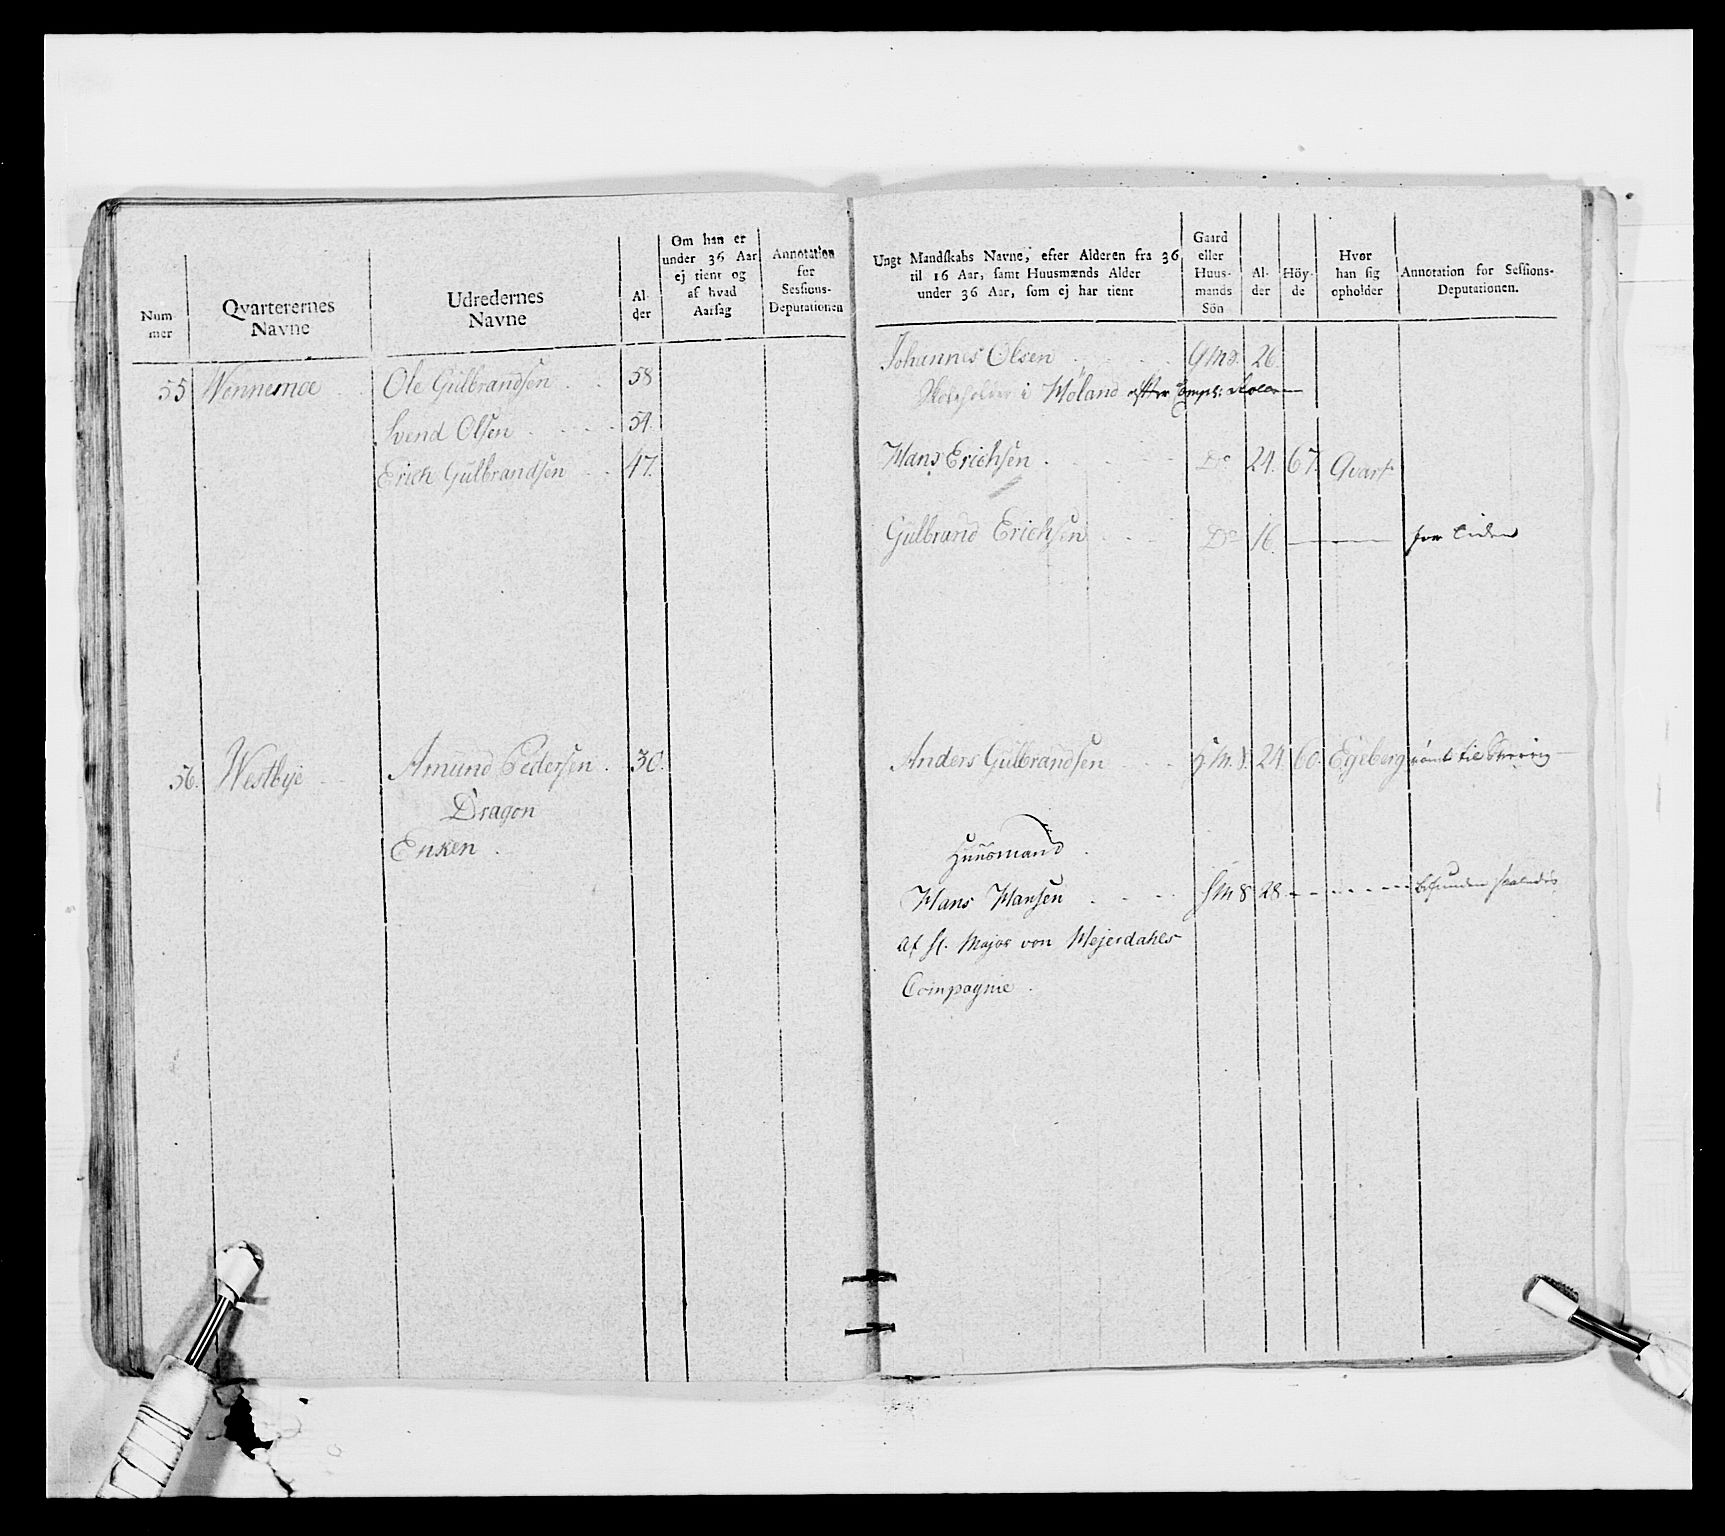 Num-
mer
Qvarterernes
Navne
Udredernes
Navne
Al-
der
Om han er
under 36 Aar
ej tient og
af hvad
Aarsag
Annotation
for
Sessions-
Deputationen
55 Wennemoe Ole Gulbrandsen 58
Svend Olsen 54.
Erich Gulbrandsen 47.
56. Westbye Amund Pedersen 30.
Dragon
Enken
Ungt Mandskabs Navne, efter Alderen fra 36
til 16 Aar, samt Huusmænds Alder
under 36 Aar, som ej har tient
Gaard
eller
Huus-
mands
Sön
Al-
der
Höy-
de
Hvor
han sig
opholder
Annotation for Sessions-
Deputationen.
Johannes Olsen G M S. 26.
Skoleholder i Höland efter
Hans Erichsen D° 24. 67. Qvart
Gulbrand Erichsen D° 16. for liden
Anders Gulbrandsen H M. S. 24. 60. Egeberg römt til Sverrig
Huusmand
Hans Hansen H M S 28. befunden
af H. Major von Mejerdahls
Compagnie